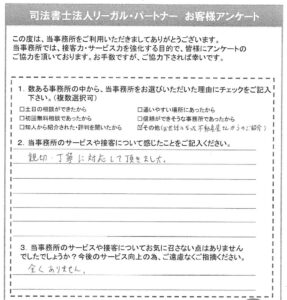 司法書士法人リーガル・パートナー お客様アンケート
この度は、当事務所をご利用いただきましてありがとうございます。
当事務所では、接客力・サービス力を強化する目的で、皆様にアンケートの
ご協力を頂いております。お手数ですが、ご協力下されば幸いです。
1. 数ある事務所の中から、当事務所をお選びいただいた理由にチェックをご記入
下さい。(複数選択可)
□土日の相談ができたから □通いやすい場所にあったから
□初回無料相談であったから □信頼ができそうな事務所であったから
□知人から紹介された・評判を聞いたから ☑その他(お世話になった不動産屋さんからのご紹介)
2. 当事務所のサービスや接客について感じたことをご記入ください。
親切・丁寧に対応して頂きました。
3. 当事務所のサービスや接客についてお気に召さない点はありません
でしたでしょうか?今後のサービス向上の為、ご遠慮なくご指摘ください。
全くありません。